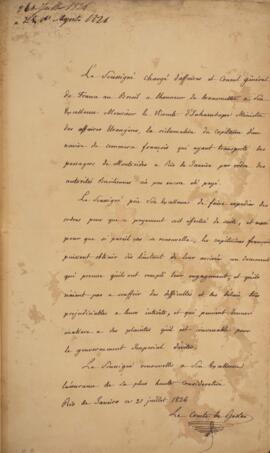 Le Soussigné chargé d'affaires et Consul Général
de France au Brésil a l'honneur de transmettre à Son
Excellence Monsieur le Vicomte d'Inhambupe Ministre
des affaires Etrangères, la réclamation du Capitaine d'un
navire de commerce français qui ayant transporté des
passagers de Montevideo à Rio de Janeiro par ordre des
autorités Brésiliennes n'a pas encore été payé.
Le Soussigné prie Son Excellence de faire expédier des
ordres pour que ce payement soit effectué de suite, et aussi
pour que si pareil cas se renouvelle, les capitaines français
puissent obtenir dès l'instant de leur arrivée un document
qui prouve qu'ils ont rempli leur engagement, et qu'ils
n'aient pas à souffrir des difficultés et des délais très
préjudiciables à leurs intérêts, et qui peuvent donner
matière à des plaintes qu'il est convenable pour
le gouvernement Impérial d'éviter.
Le Soussigné renouvelle à Son Excellence
l'assurance de sa plus haute considération.
Rio de Janeiro ce 21 juillet 1826
Le Comte de Gestas